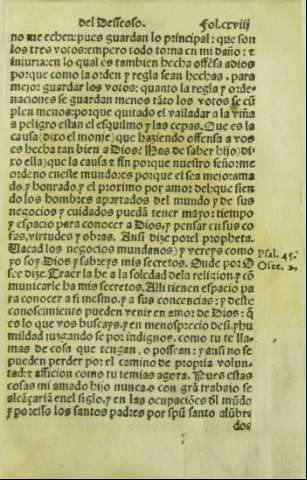 del Desseoso. Fol.cxviij
no me echen: pues guardan lo principal: que son
los tres votos: empero todo torna en mi daño: t
injuria: en lo qual es tambien hecha offēsa a dios
porque como la ordē y regla sean hechas, para
mejor guardar los votos: quanto la regla y orde-
naciones se guardan menos tāto los votos se cū
plen menos: porque quitado el valladar a la viña
a peligro estan el esquilmo y las cepas. Que es la
causa (dixo el monje) que haziendo offensa a vos
es hecha tan bien a Dios: Has de saber hijo (di
xo ella) que la causa t fin porque nuestro señor me
ordeno eneste mundo: es porque el sea mejor ama
do, y honrado, y el proximo por amor del: que sien
do los hombres apartados del mundo y de sus
negocios y cuidados puedā tener mayor tiempo
y espacio para conocer a Dios, y pensar en sus co
sas, virtudes y obras. Assi dize por el propheta.
Uacad los negocios mundanos) y vereys como
yo soy Dios, y sabreys mis secretos. Onde por O
see dize. Traer la he a la soledad de la religion, y co
municarle ha mis secretos. Alli tienen espacio pa
ra conocer a si mesmo, y a sus concencias: y deste
conocimiento pueden venir en amor de Dios: q̄
es lo que vos buscays, y en menosprecio de si, y hu
mildad juzgando se por indignos, como tu te lla-
mas de cosa que tengan, o possean: y ansi no se
pueden perder por el camino de propria volun-
tad: t afficion como tu temias agora. Pues estas
cosas mi amado hijo nunca, o con grā trabajo se
alcāçaria en el siglo, y en las ocupaciōes dl mūdo
y por esso los santos padres por spū santo alūbra
dos
Psal. 45.
Osee. 2.